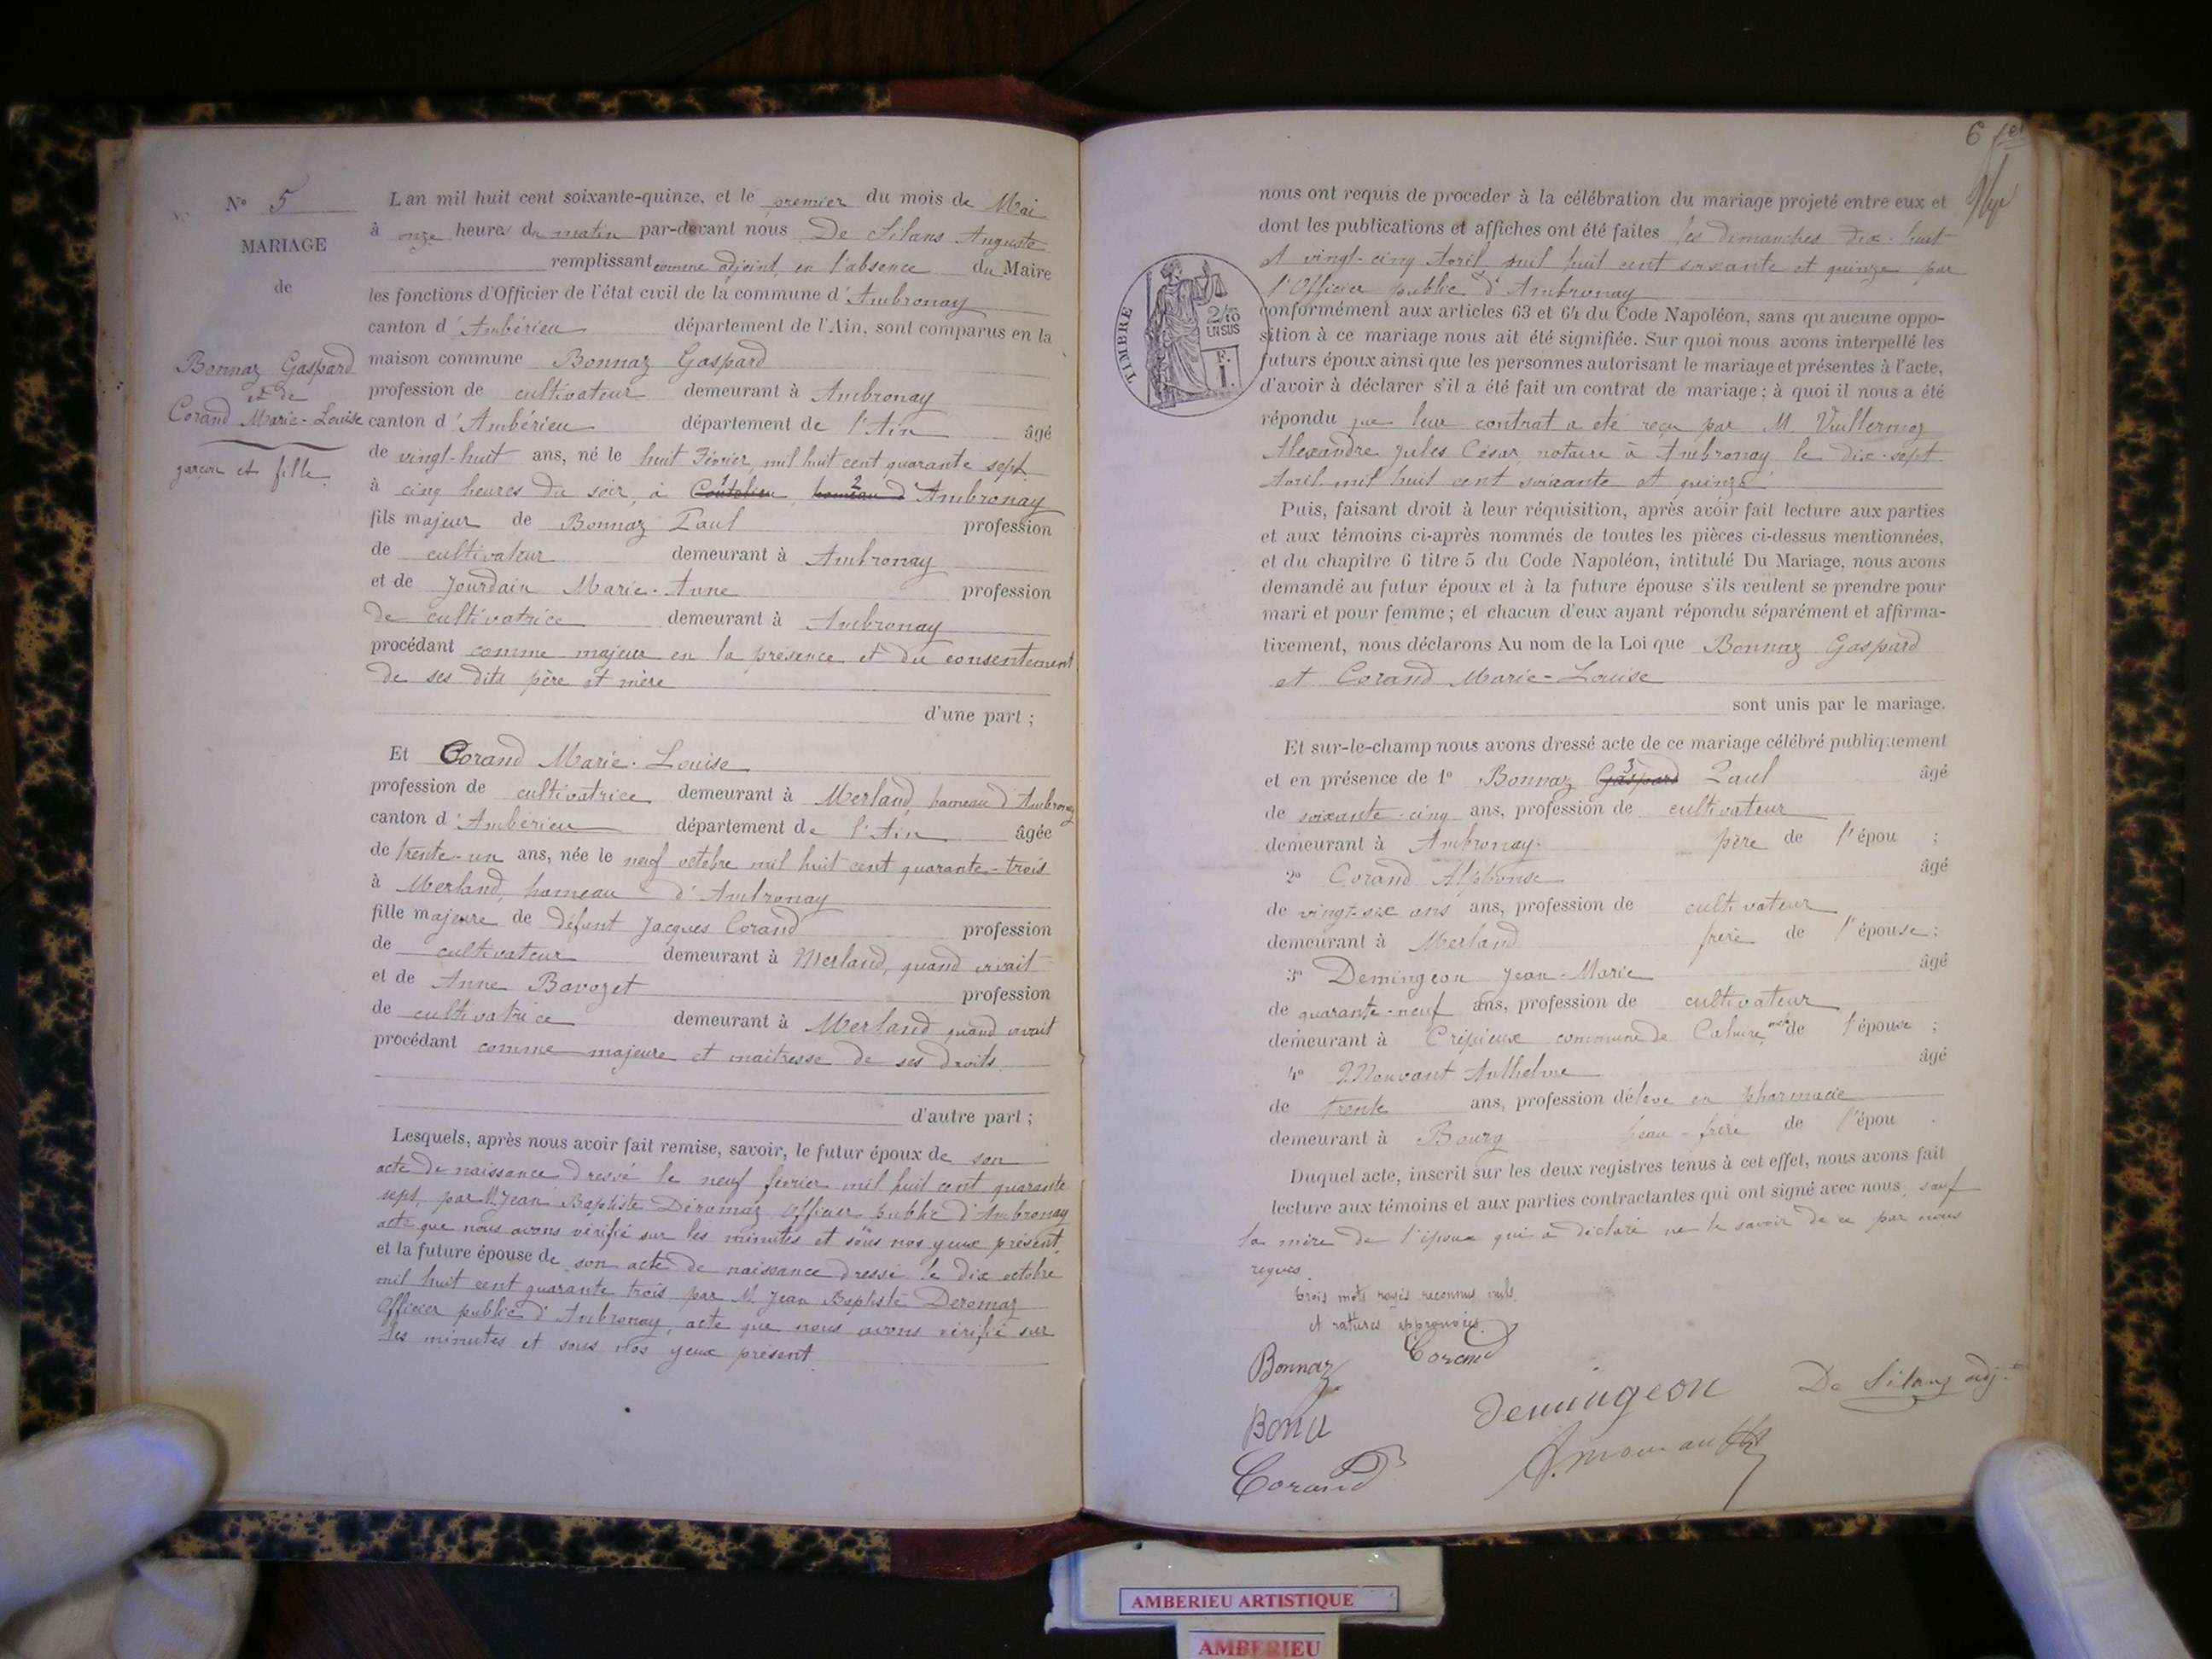 N° 5
MARIAGE
de
Bonnaz Gaspard
et de
Corand Marie-Louise
garçon et fille
L'an mil huit cent soixante-quinze, et le premier du mois de Mai
à onze heures du matin par-devant nous De Silans Auguste
remplissant comme adjoint, en l'absence du Maire
les fonctions d'Officier de l'état civil de la commune d'Ambronay
canton d'Ambérieu département de l'Ain, sont comparus en la
maison commune Bonnaz Gaspard
profession de cultivateur demeurant à Ambronay
canton d'Ambérieu département de l'Ain âgé
de vingt-huit ans, né le huit Février mil huit cent quarante sept
à cinq heures du soir, à 1 hameau 2 d'Ambronay
fils majeur de Bonnaz Paul profession
de cultivateur demeurant à Ambronay
et de Jourdain Marie-Anne profession
de cultivatrice demeurant à Ambronay
procédant comme majeur en la présence et du consentement
de ses dits père et mère
d'une part ;
Et Corand Marie-Louise
profession de cultivatrice demeurant à Merland, hameau d'Ambronay
canton d'Ambérieu département de l'Ain âgée
de trente-un ans, née le neuf octobre mil huit cent quarante-trois
à Merland, hameau d'Ambronay
fille majeure de défunt Jacques Corand profession
de cultivateur demeurant à Merland, quand vivait
et de Anne Bavozet profession
de cultivatrice demeurant à Merland quand vivait
procédant comme majeure et maitresse de ses droits
d'autre part ;
Lesquels, après nous avoir fait remise, savoir, le futur époux de son
acte de naissance dressé le neuf février mil huit cent quarante
sept, par M. Jean Baptiste Deromaz Officier public d'Ambronay
acte que nous avons vérifié sur les minutes et sous nos yeux présent,
et la future épouse de son acte de naissance dressé le dix octobre
mil huit cent quarante trois par M. Jean Baptiste Deromaz
Officier public d'Ambronay, acte que nous avons vérifié sur
les minutes et sous nos yeux présent
6
TIMBRE
2/10
EN SUS
F.
1.
nous ont requis de procéder à la célébration du mariage projeté entre eux et
dont les publications et affiches ont été faites les dimanches dix-huit
et vingt-cinq Avril mil huit cent soixante et quinze par
l'Officier public d'Ambronay
conformément aux articles 63 et 64 du Code Napoléon, sans qu'aucune oppo-
sition à ce mariage nous ait été signifiée. Sur quoi nous avons interpellé les
futurs époux ainsi que les personnes autorisant le mariage et présentes à l'acte,
d'avoir à déclarer s'il a été fait un contrat de mariage ; à quoi il nous a été
répondu que leur contrat a été reçu par M. Vuillermoz
Alexandre Jules César, notaire à Ambronay le dix-sept
Avril mil huit cent soixante et quinze
Puis, faisant droit à leur réquisition, après avoir fait lecture aux parties
et aux témoins ci-après nommés de toutes les pièces ci-dessus mentionnées,
et du chapitre 6 titre 5 du Code Napoléon, intitulé Du Mariage, nous avons
demandé au futur époux et à la future épouse s'ils veulent se prendre pour
mari et pour femme ; et chacun d'eux ayant répondu séparément et affirma-
tivement, nous déclarons Au nom de la Loi que Bonnaz Gaspard
et Corand Marie-Louise
sont unis par le mariage.
Et sur-le-champ nous avons dressé acte de ce mariage célébré publiquement
et en présence de 1° Bonnaz Gaspard 3 Paul âgé
de soixante-cinq ans, profession de cultivateur
demeurant à Ambronay père de l'épou ;
2° Corand Alphonse âgé
de vingt-six ans ans, profession de cultivateur
demeurant à Merland frère de l'épouse ;
3° Demingeon Jean-Marie âgé
de quarante-neuf ans, profession de cultivateur
demeurant à Crépieux commune de Caluire, de l'épouse ;
4° Anthelme âgé
de trente ans, profession d'élève en pharmacie
demeurant à Bourg beau-frère de l'épou
Duquel acte, inscrit sur les deux registres tenus à cet effet, nous avons fait
lecture aux témoins et aux parties contractantes qui ont signé avec nous, sauf
la mère de l'époux qui a déclaré ne le savoir de ce par nous
requis.
trois mots rayés reconnus nuls
et ratures approuvées.
Bonnaz Corand
Demingeon De Silans adj.
Corand
AMBERIEU ARTISTIQUE
AMBERIEU